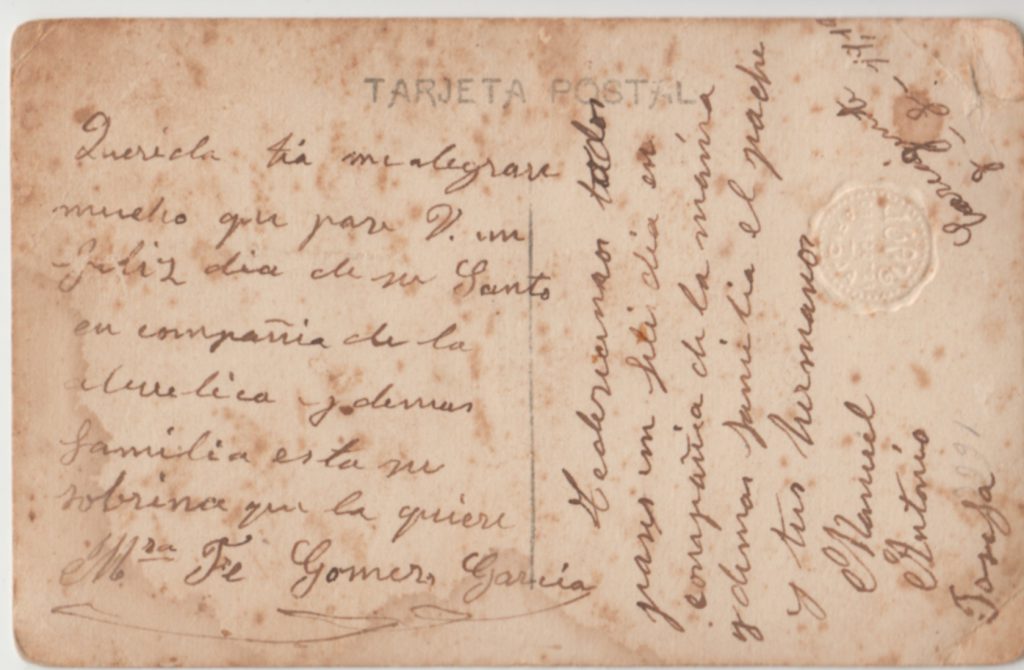 TARJETA POSTAL
Querida tia me alegrare
mucho que pase V. un
feliz dia de su Santo
en compañia de la
abuelica y demas
familia esta su
sobrina que la quiere
Mra Fe Gomez Garcia
todos
pases un feli dia en
compañia de la mama
y demas familia el padre
y tus hermanos
Manuel
Antonio
Josefa